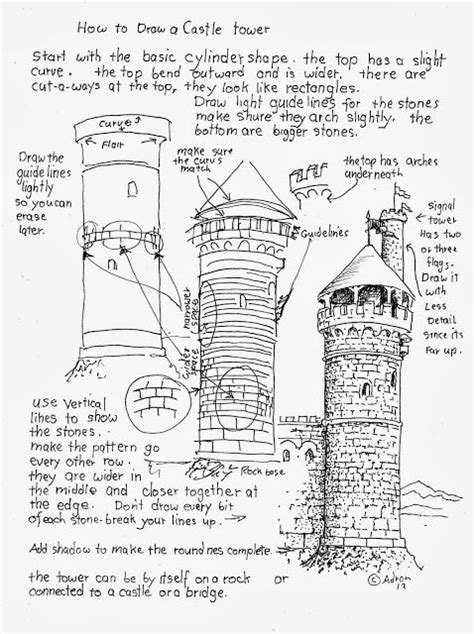 How to Draw a Castle tower
Start with the basic cylinder shape. the top has a slight
curve. the top bend outward and is wider. there are
cut-a-ways at the top, they look like rectangles.
Draw light guidelines for the stones
make shure they arch slightly. the
bottom are bigger stones.
Curve
Flair
Draw the
guidelines
lightly
so you can
erase
later.
make sure
the curvs
match
the top has arches
underneath
Guidelines
Signal
tower
Has two
or three
flags.
Draw it
with
Less
Detail
since its
Far up.
narrower
space
wider
space
use vertical
lines to show
the stones.
make the pattern go
every other row.
they are wider in
the middle and closer together at
the edge. Dont draw every bit
of each stone-break your lines up.
Rock base
Add shadow to make the roundnes complete.
the tower can be by itself on a rock or
connected to a castle or a bridge.
© Adron
13